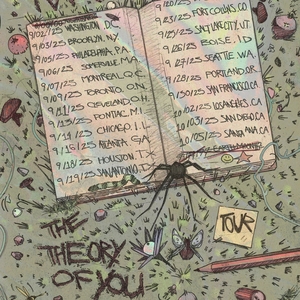 9/02/25 WASHINGTON, D.C.
9/03/25 BROOKLYN, N.Y.
9/05/25 PHILADELPHIA, P.A.
9/06/25 SOMERVILLE, M.A.
9/07/25 MONTREAL, Q.C.
9/09/25 TORONTO, O.N.
9/11/25 CLEVELAND, O.H.
PONTIAC, M.I.
9/13/25 CHICAGO, I.L.
9/16/25 ATLANTA, G.A.
9/18/25 HOUSTON, TX
9/19/25 SAN ANTONIO, TX
9/23/25 FORT COLLINS, CO
9/25/25 SALT LAKE CITY, UT
9/26/25 BOISE, ID
9/27/25 SEATTLE, WA
9/28/25 PORTLAND, OR
SAN FRANCISCO, CA
10/02/25 LOS ANGELES, CA
10/03/25 SAN DIEGO, CA
10/05/25 SANTA ANA, CA
THE
THEORY
OF YOU
TOUR